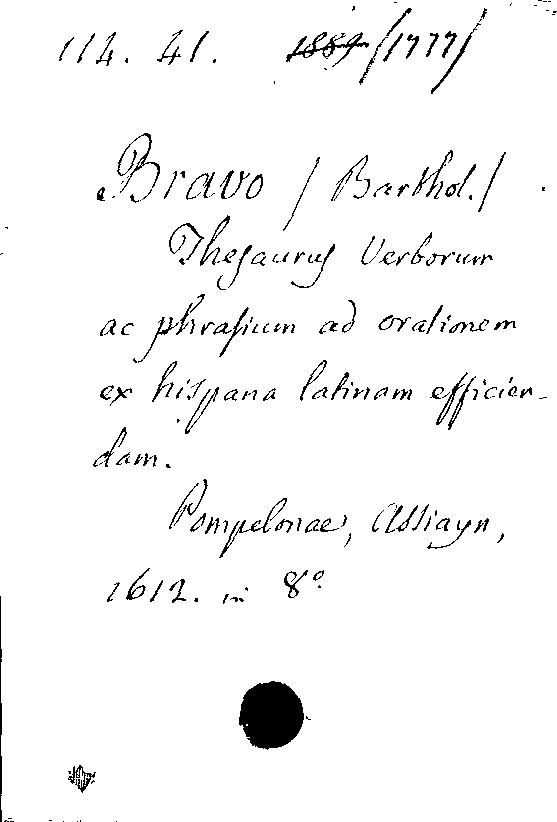 114. 41. 1889 /1777/
Bravo / Barthol. /
Thesaurus Verborum
ac phrasium ad orationem
ex hispana latinam efficien-
dam.
Pompelonae, Assiayn,
1612. in 8º